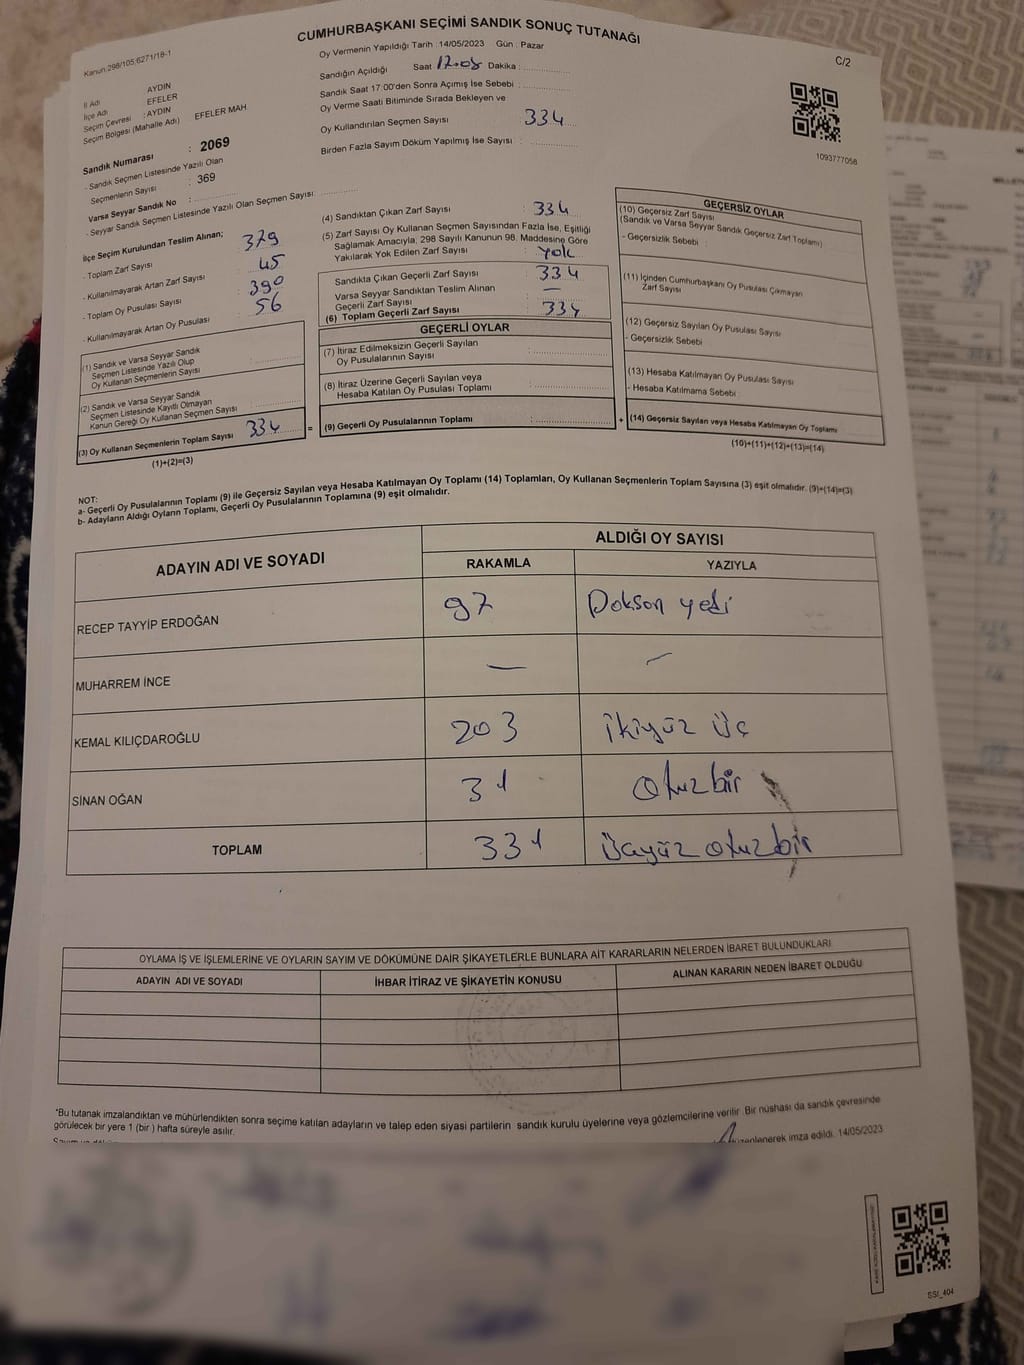 CUMHURBAŞKANI SEÇİMİ SANDIK SONUÇ TUTANAĞI
Kanun:298/105;6271/18-1
C/2
Oy Vermenin Yapıldığı Tarih : 14/05/2023 Gün : Pazar
Sandığın Açıldığı Saat 17.08 Dakika :
Sandık Saat 17:00'den Sonra Açımış İse Sebebi :
Oy Verme Saati Bitiminde Sırada Bekleyen ve
Oy Kullandırılan Seçmen Sayısı : 334
Birden Fazla Sayım Döküm Yapılmış İse Sayısı :
1093777058
İl Adı : AYDIN
İlçe Adı : EFELER
Seçim Çevresi : AYDIN
Seçim Bölgesi (Mahalle Adı) : EFELER MAH.
Sandık Numarası : 2069
- Sandık Seçmen Listesinde Yazılı Olan
Seçmenlerin Sayısı : 369
Varsa Seyyar Sandık No :
- Seyyar Sandık Seçmen Listesinde Yazılı Olan Seçmen Sayısı:
İlçe Seçim Kurulundan Teslim Alınan;
- Toplam Zarf Sayısı 379
- Kullanılmayarak Artan Zarf Sayısı 45
- Toplam Oy Pusulası Sayısı 390
- Kullanılmayarak Artan Oy Pusulası 56
(1) Sandık ve Varsa Seyyar Sandık
Seçmen Listesinde Yazılı Olup
Oy Kullanan Seçmenlerin Sayısı
(2) Sandık ve Varsa Seyyar Sandık
Seçmen Listesinde Kayıtlı Olmayan
Kanun Gereği Oy Kullanan Seçmen Sayısı
(3) Oy Kullanan Seçmenlerin Toplam Sayısı 334 =
(1)+(2)=(3)
(4) Sandıktan Çıkan Zarf Sayısı : 334
(5) Zarf Sayısı Oy Kullanan Seçmen Sayısından Fazla İse, Eşitliği
Sağlamak Amacıyla; 298 Sayılı Kanunun 98. Maddesine Göre
Yakılarak Yok Edilen Zarf Sayısı : Yok
Sandıkta Çıkan Geçerli Zarf Sayısı : 334
Varsa Seyyar Sandıktan Teslim Alınan
Geçerli Zarf Sayısı : —
(6) Toplam Geçerli Zarf Sayısı : 334
GEÇERLİ OYLAR
(7) İtiraz Edilmeksizin Geçerli Sayılan
Oy Pusulalarının Sayısı :
(8) İtiraz Üzerine Geçerli Sayılan veya
Hesaba Katılan Oy Pusulası Toplamı :
(9) Geçerli Oy Pusulalarının Toplamı : +
GEÇERSİZ OYLAR
(10) Geçersiz Zarf Sayısı
(Sandık ve Varsa Seyyar Sandık Geçersiz Zarf Toplamı)
- Geçersizlik Sebebi :
(11) İçinden Cumhurbaşkanı Oy Pusulası Çıkmayan
Zarf Sayısı
(12) Geçersiz Sayılan Oy Pusulası Sayısı
- Geçersizlik Sebebi
(13) Hesaba Katılmayan Oy Pusulası Sayısı
- Hesaba Katılmama Sebebi :
(14) Geçersiz Sayılan veya Hesaba Katılmayan Oy Toplamı
(10)+(11)+(12)+(13)=(14)
NOT:
a- Geçerli Oy Pusulalarının Toplamı (9) ile Geçersiz Sayılan veya Hesaba Katılmayan Oy Toplamı (14) Toplamları, Oy Kullanan Seçmenlerin Toplam Sayısına (3) eşit olmalıdır. (9)+(14)=(3)
b- Adayların Aldığı Oyların Toplamı, Geçerli Oy Pusulalarının Toplamına (9) eşit olmalıdır.
ADAYIN ADI VE SOYADI
ALDIĞI OY SAYISI
RAKAMLA YAZIYLA
RECEP TAYYİP ERDOĞAN 97 Dokson yedi
MUHARREM İNCE — —
KEMAL KILIÇDAROĞLU 203 İkiyüz üç
SİNAN OĞAN 31 Otuzbir
TOPLAM 331 Üçyüz otuzbir
OYLAMA İŞ VE İŞLEMLERİNE VE OYLARIN SAYIM VE DÖKÜMÜNE DAİR ŞİKAYETLERLE BUNLARA AİT KARARLARIN NELERDEN İBARET BULUNDUKLARI
ADAYIN ADI VE SOYADI İHBAR İTİRAZ VE ŞİKAYETİN KONUSU ALINAN KARARIN NEDEN İBARET OLDUĞU
*Bu tutanak imzalandıktan ve mühürlendikten sonra seçime katılan adayların ve talep eden siyasi partilerin sandık kurulu üyelerine veya gözlemcilerine verilir. Bir nüshası da sandık çevresinde
görülecek bir yere 1 (bir) hafta süreyle asılır.
imza edildi. 14/05/2023
SSİ_404